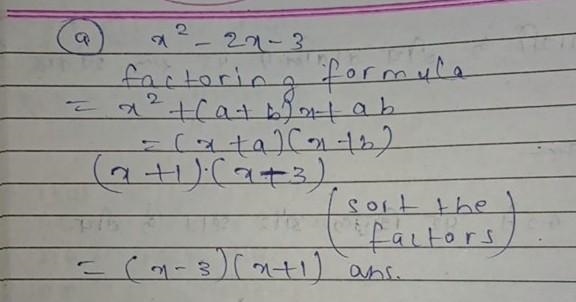 (a) x² - 2x - 3
factoring formula
= x² + (a + b)x + ab
= (x + a)(x + b)
(x + 1)·(x - 3)
(sort the factors).
= (x - 3)(x + 1) ans.